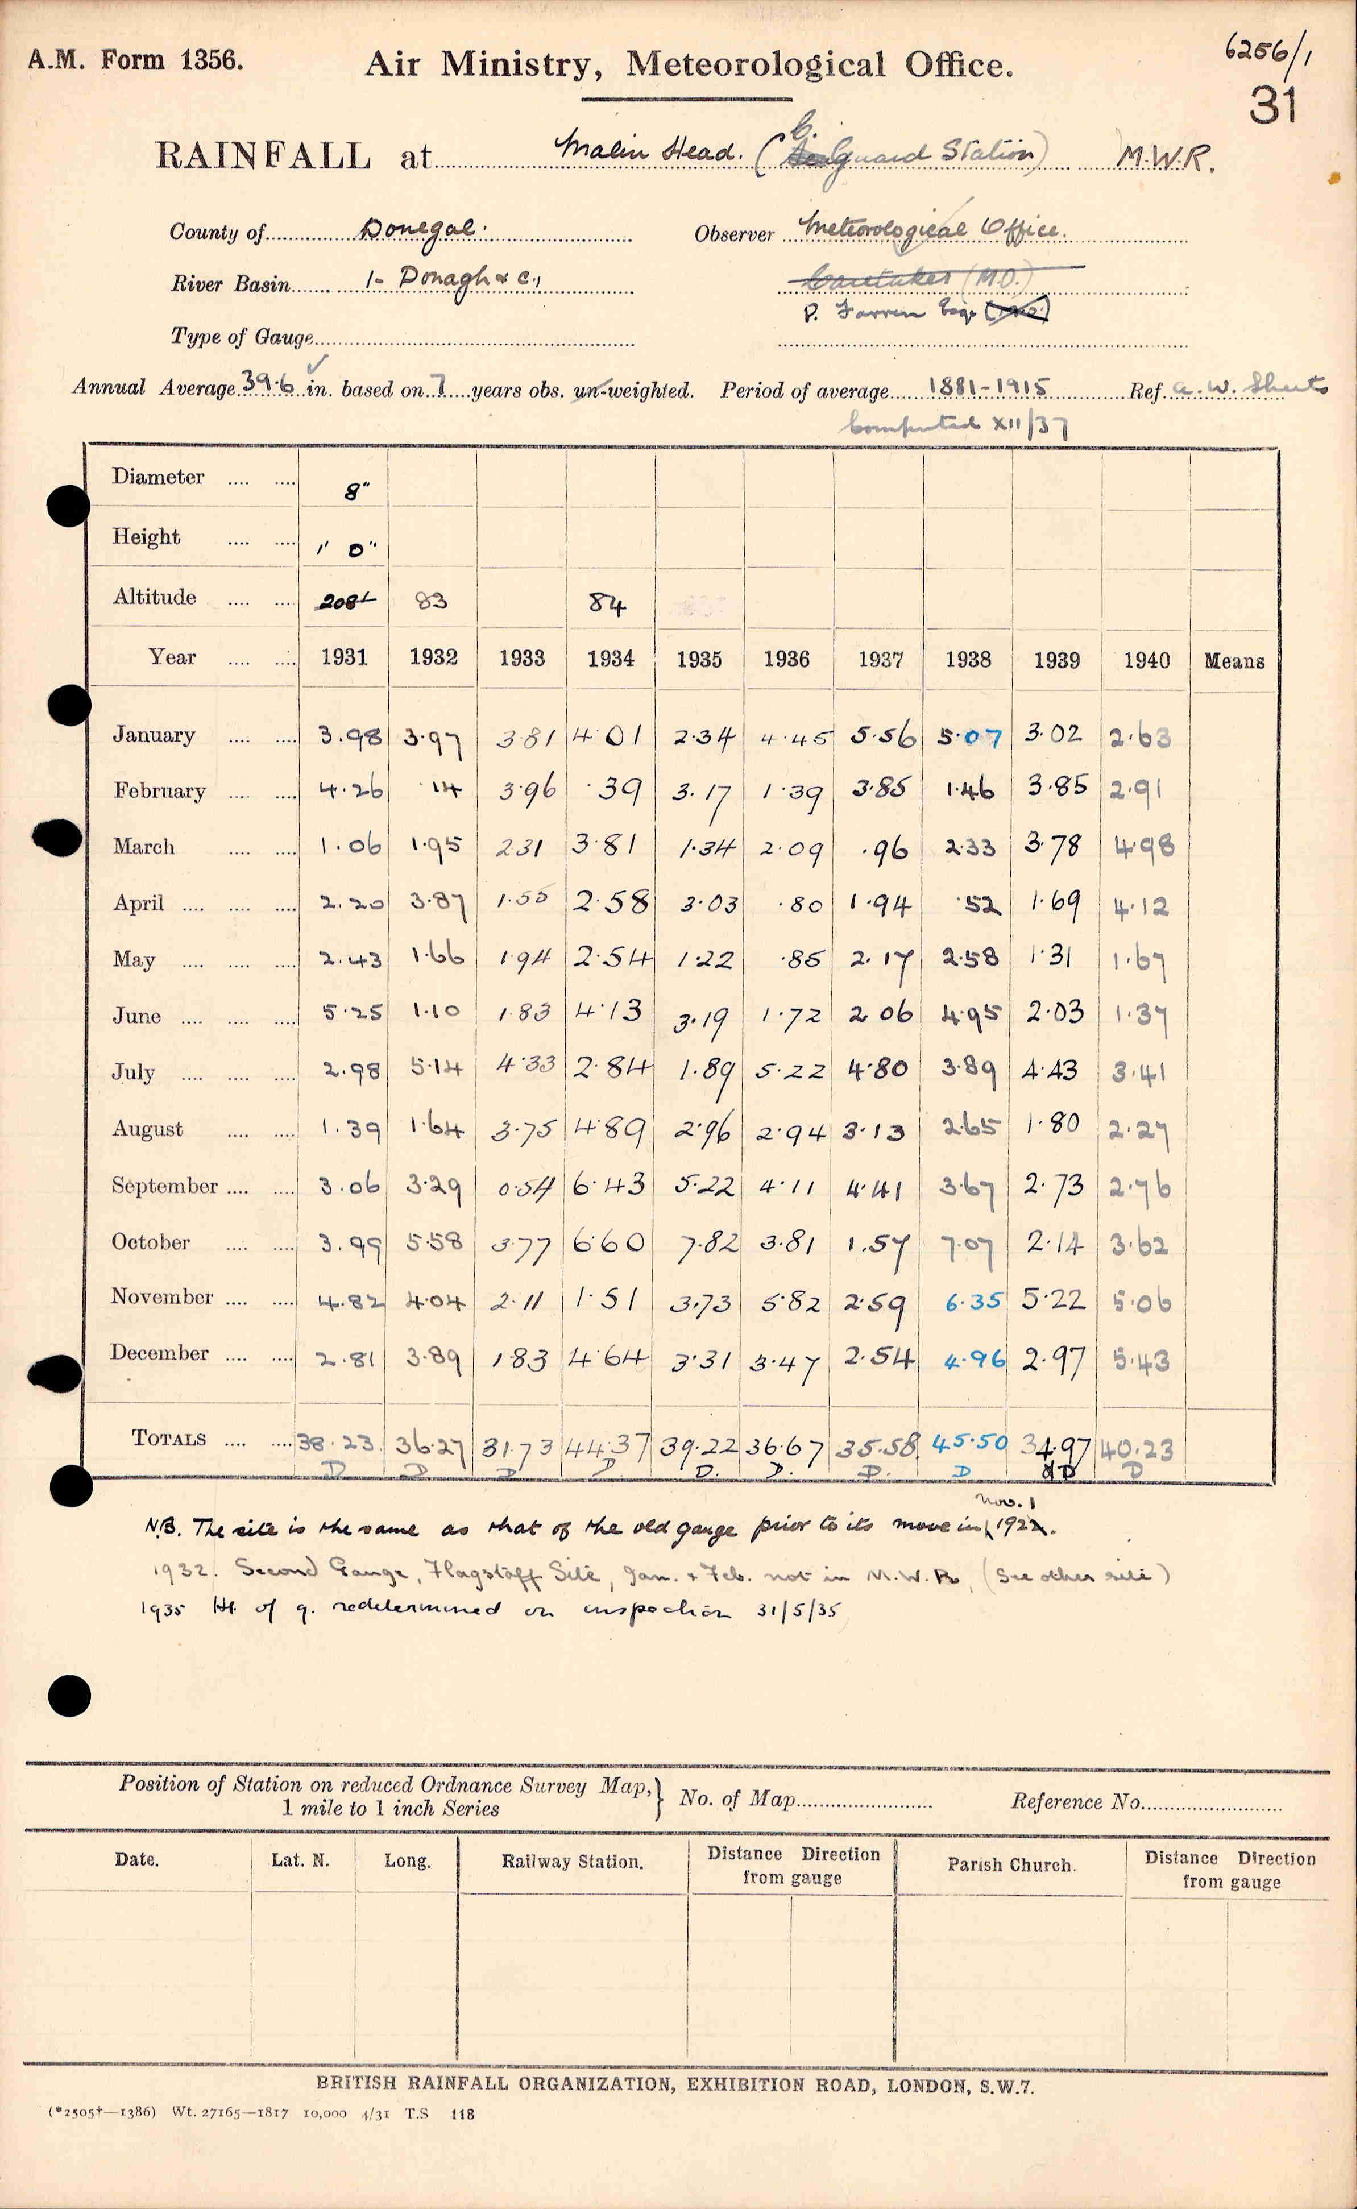 A.M. Form 1356. Air Ministry, Meteorological Office. 6256/1
31
RAINFALL at Malin Head. (C. Guard Station) M.W.R.
County of Donegal. Observer Meteorological Office.
River Basin 1- Donagh & c., Caretaker (M.O.)
P. Farren Esq.
Type of Gauge
Annual Average 39.6 in. based on 7 years obs. un-weighted. Period of average 1881-1915 Ref. A.W. Sheets
Computed XII/37
Diameter 8"
Height 1' 0"
Altitude 208 83 84
Year 1931 1932 1933 1934 1935 1936 1937 1938 1939 1940 Means
January 3.98 3.97 3.81 4.01 2.34 4.45 5.56 5.07 3.02 2.63
February 4.26 .14 3.96 .39 3.17 1.39 3.85 1.46 3.85 2.91
March 1.06 1.95 2.31 3.81 1.34 2.09 .96 2.33 3.78 4.98
April 2.20 3.87 1.55 2.58 3.03 .80 1.94 .52 1.69 4.12
May 2.43 1.66 1.94 2.54 1.22 .85 2.17 2.58 1.31 1.67
June 5.25 1.10 1.83 4.13 3.19 1.72 2.06 4.95 2.03 1.37
July 2.98 5.14 4.33 2.84 1.89 5.22 4.80 3.89 4.43 3.41
August 1.39 1.64 3.75 4.89 2.96 2.94 3.13 2.65 1.80 2.27
September 3.06 3.29 0.54 6.43 5.22 4.11 4.41 3.67 2.73 2.76
October 3.99 5.58 3.77 6.60 7.82 3.81 1.57 7.07 2.14 3.62
November 4.82 4.04 2.11 1.51 3.73 5.82 2.59 6.35 5.22 5.06
December 2.81 3.89 1.83 4.64 3.31 3.47 2.54 4.96 2.97 5.43
TOTALS 38.23 36.27 31.73 44.37 39.22 36.67 35.58 45.50 34.97 40.23
D D D D. D. D. D. D D D
Nov. 1
N.B. The site is the same as that of the old gauge prior to its move in 1922.
1932. Second Gauge, Flagstaff Site, Jan. & Feb. not in M.W.R. (See other site)
1935 Ht. of g. redetermined on inspection 31/5/35
Position of Station on reduced Ordnance Survey Map, } No. of Map Reference No.
1 mile to 1 inch Series
Date. Lat. N. Long. Railway Station. Distance Direction from gauge Parish Church. Distance Direction from gauge
BRITISH RAINFALL ORGANIZATION, EXHIBITION ROAD, LONDON, S.W.7.
(*2505†—1386) Wt. 27165—1817 10,000 4/31 T.S 118